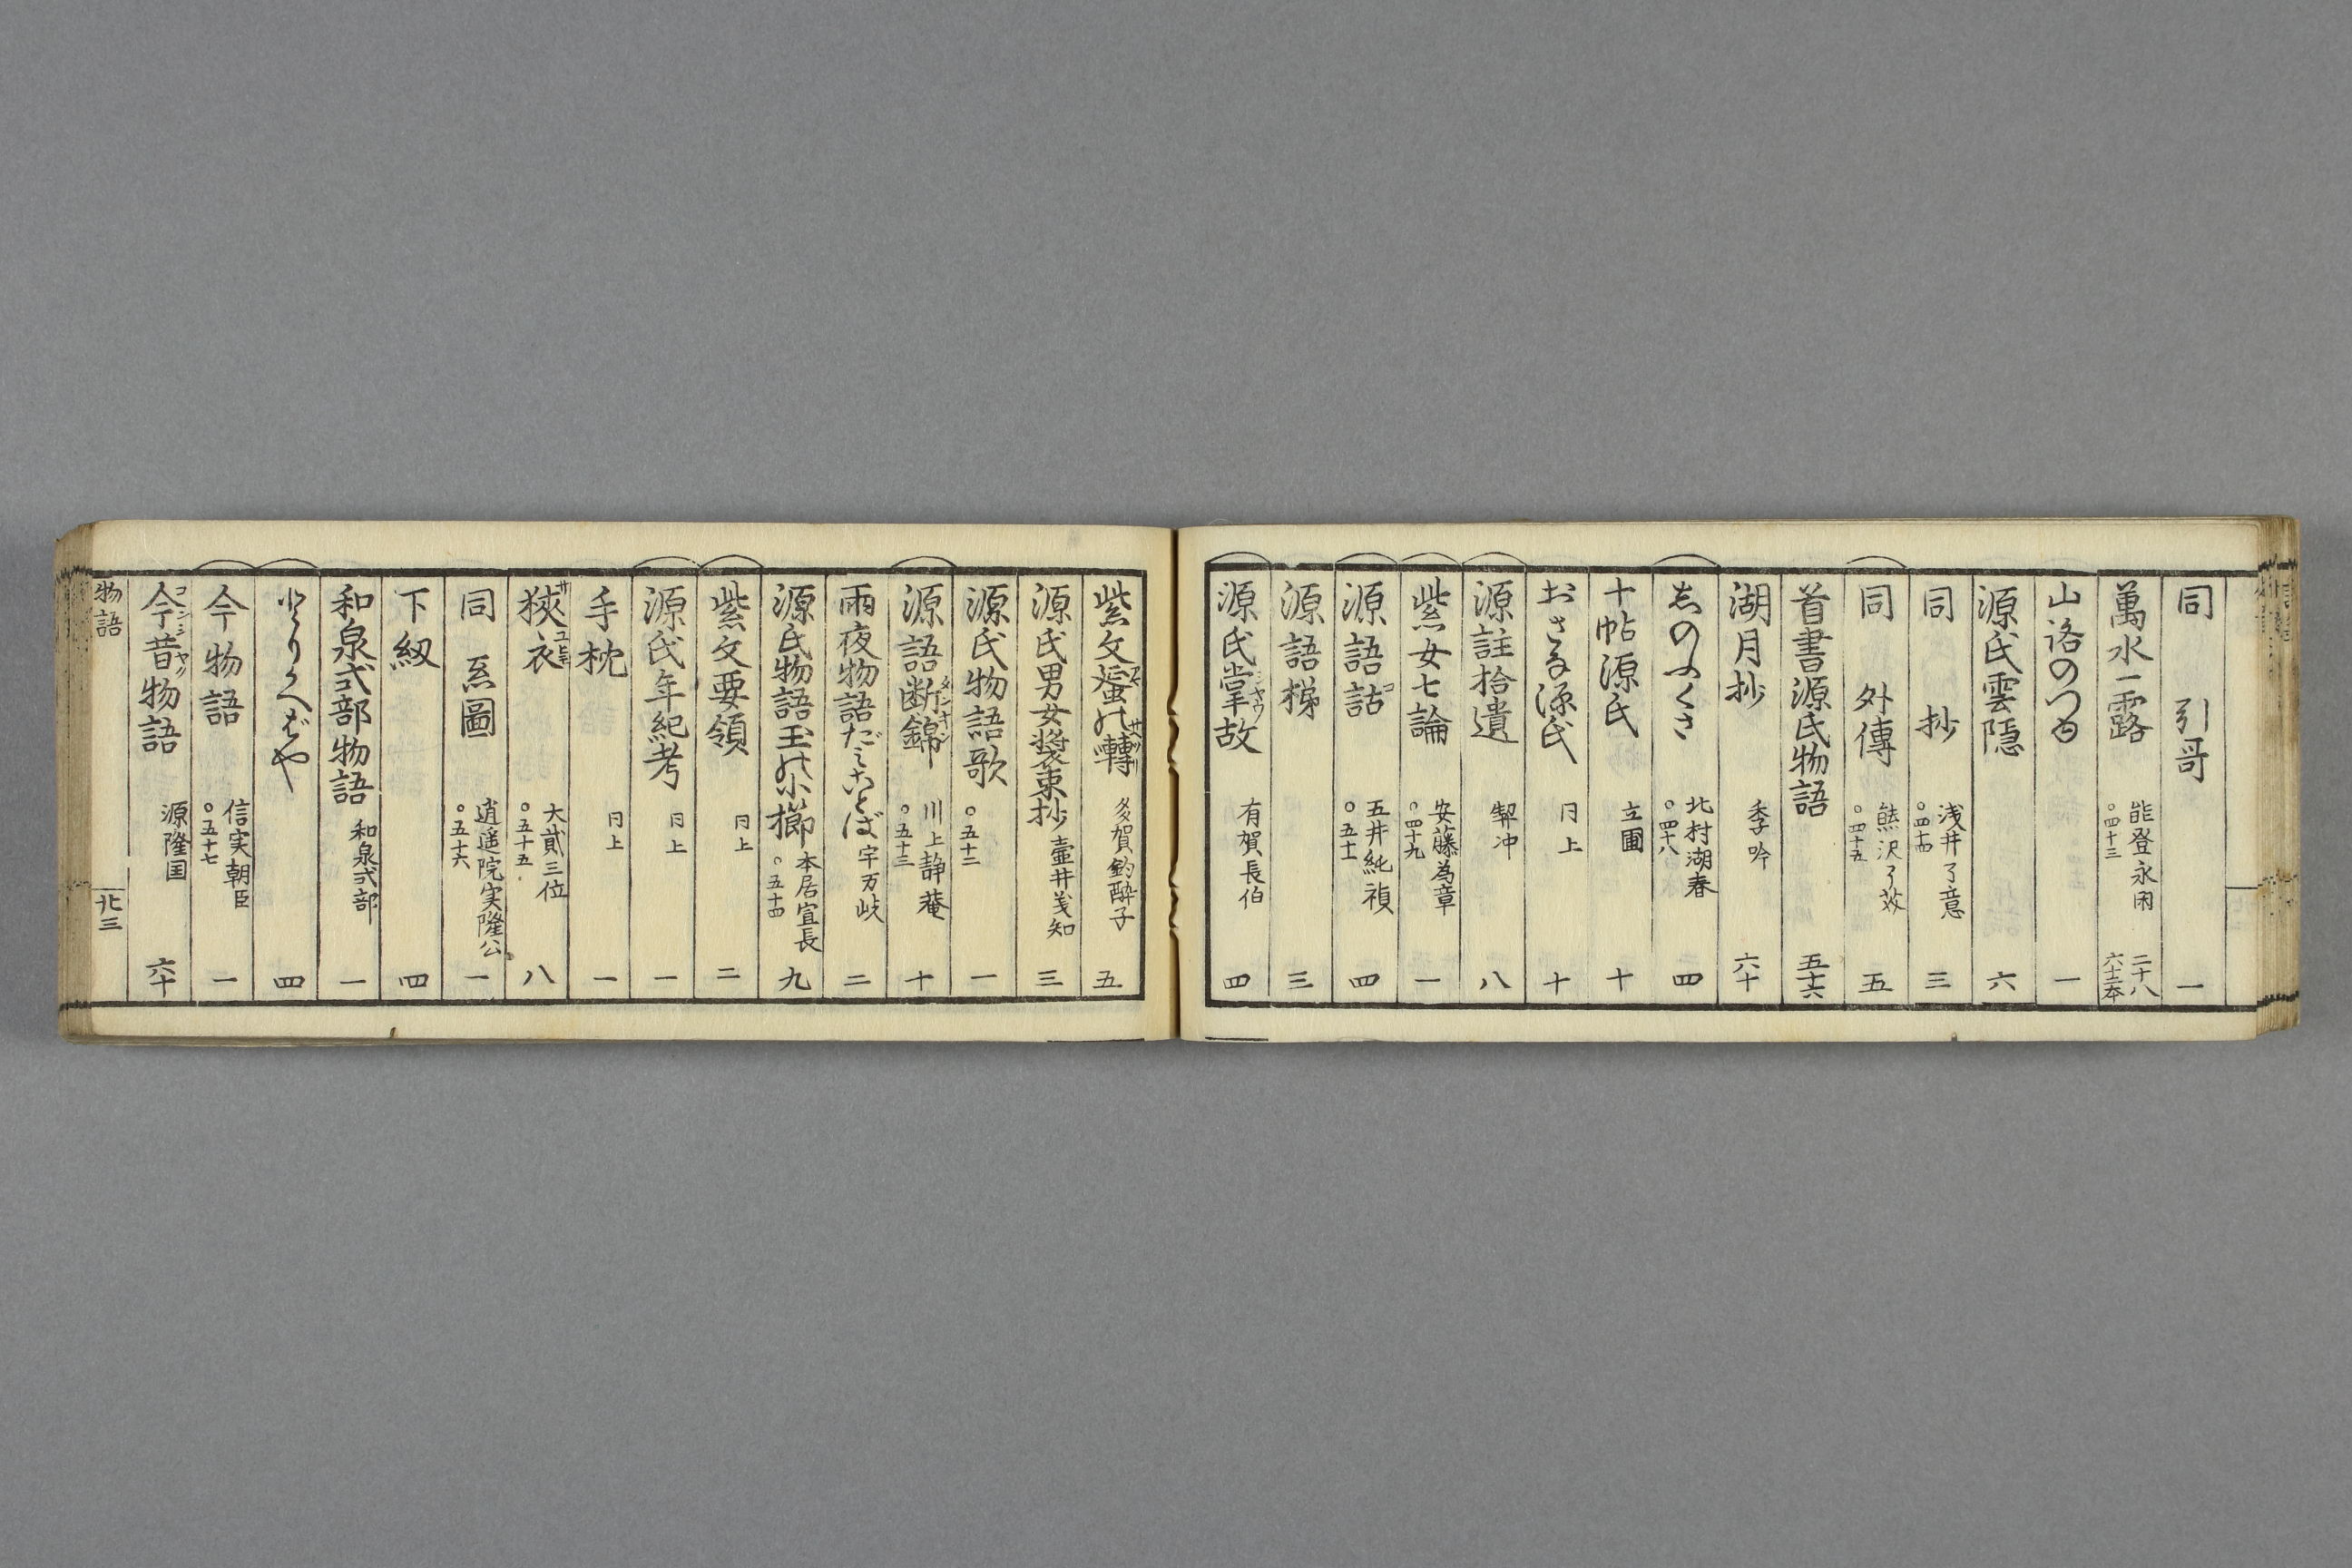 同 引哥 一
萬水一露 能登永閑 ○四十三 二十八 六十二本
山路のつゆ 一
源氏雲隠 六
同 抄 浅井了意 ○四十四 三
同 外傳 熊沢了芥 ○四十五 五
首書源氏物語 五十六
湖月抄 季吟 六十
志のふくさ 北村湖春 ○四十八 四
十帖源氏 立圃 十
おさな源氏 同上 十
源註拾遺 契冲 八
紫女七論 安藤為章 ○四十九 一
源語詁 五井純禎 ○五十一 四
源語梯 三
源氏掌故 有賀長伯 四
紫文蜑の囀 多賀釣酔子 五
源氏男女装束抄 壷井義知 三
源氏物語歌 ○五十二 一
源語断錦 川上静菴 ○五十三 十
雨夜物語だミことば 宇万岐 二
源氏物語玉の小櫛 本居宣長 ○五十四 九
紫文要領 同上 二
源氏年紀考 同上 一
手枕 同上 一
狭衣 大貳三位 ○五十五 八
同 系圖 逍遥院実隆公 ○五十六 一
下紐 四
和泉式部物語 和泉式部 一
とりかへばや 四
今物語 信実朝臣 ○五十七 一
今昔物語 源隆国 六十
物語 北三